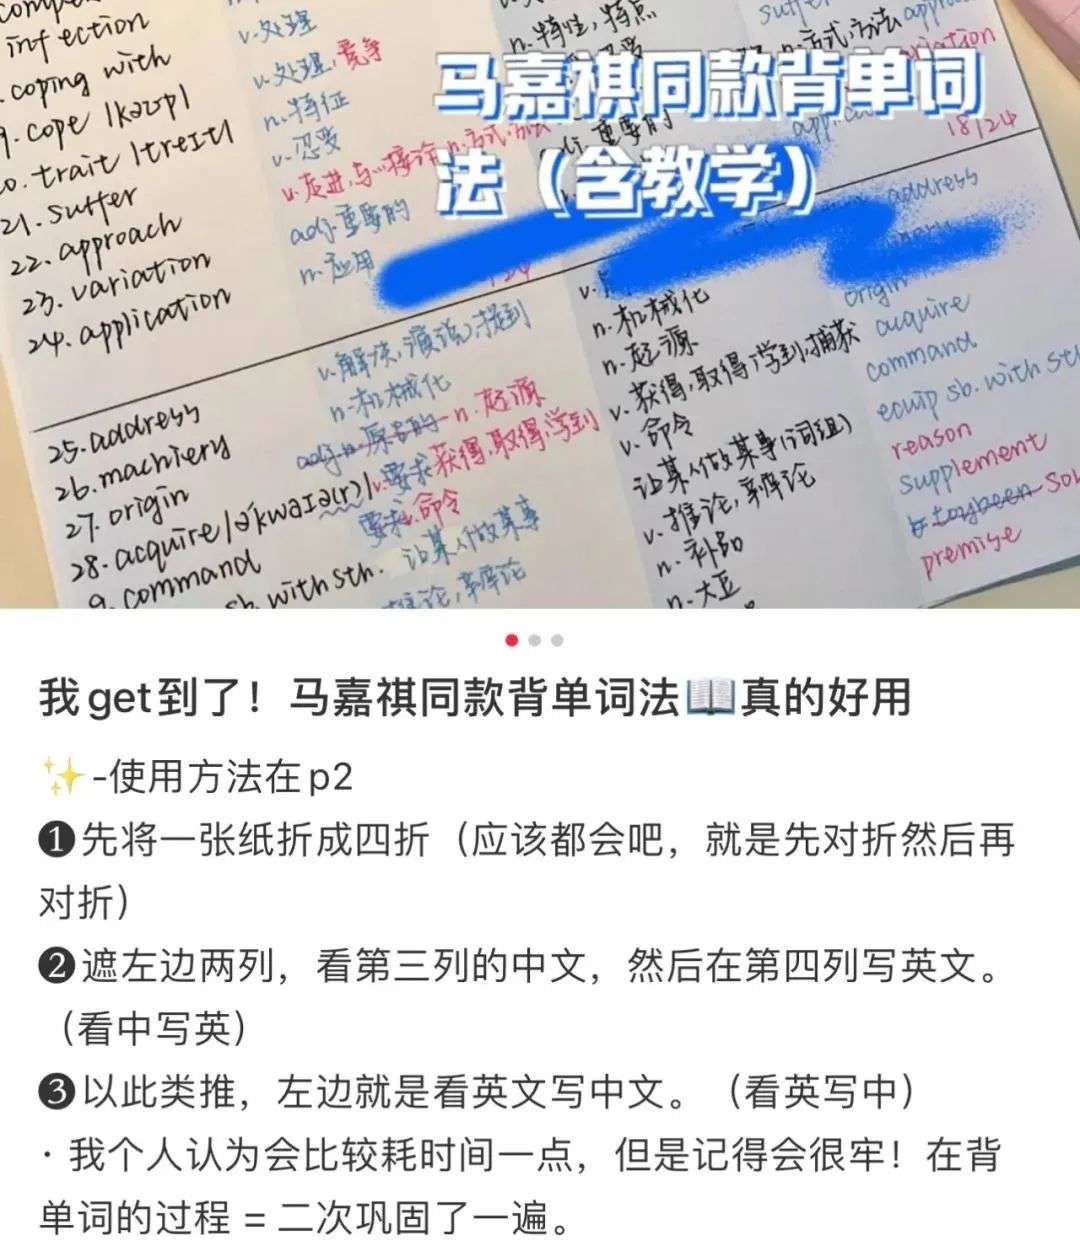 infection
v.处理
n.特性,特点
coping with
v.处理,竞争
9. cope /kəʊp/
n.特征
20. trait /treɪt/
v.忍受
21. suffer
v.走进,与…接洽 n.方式,方法
22. approach
adj.重要的
23. variation
n.应用
24. application
suffer
n.方式,方法 appro
variation
adj.重要的
18/24
马嘉祺同款背单词
法（含教学）
25. address
v.解决,演说,提到
address
26. machiery
n.机械化
n.机械化
27. origin
n.起源
n.起源
origin
28. acquire /ə'kwaɪə(r)/
v.要求 获得,取得,学到
v.获得,取得,学到,捕获
acquire
9. command
要求 v.命令
v.命令
command
sb. with sth.
让某人做某事
让某人做某事(词组)
equip sb. with sth
推论,辩论
v.推论,辩论
reason
n.补助
supplement
n.大豆
premise
我get到了！马嘉祺同款背单词法📖真的好用
✨-使用方法在p2
❶先将一张纸折成四折（应该都会吧，就是先对折然后再
对折）
❷遮左边两列，看第三列的中文，然后在第四列写英文。
（看中写英）
❸以此类推，左边就是看英文写中文。（看英写中）
· 我个人认为会比较耗时间一点，但是记得会很牢！在背
单词的过程 = 二次巩固了一遍。